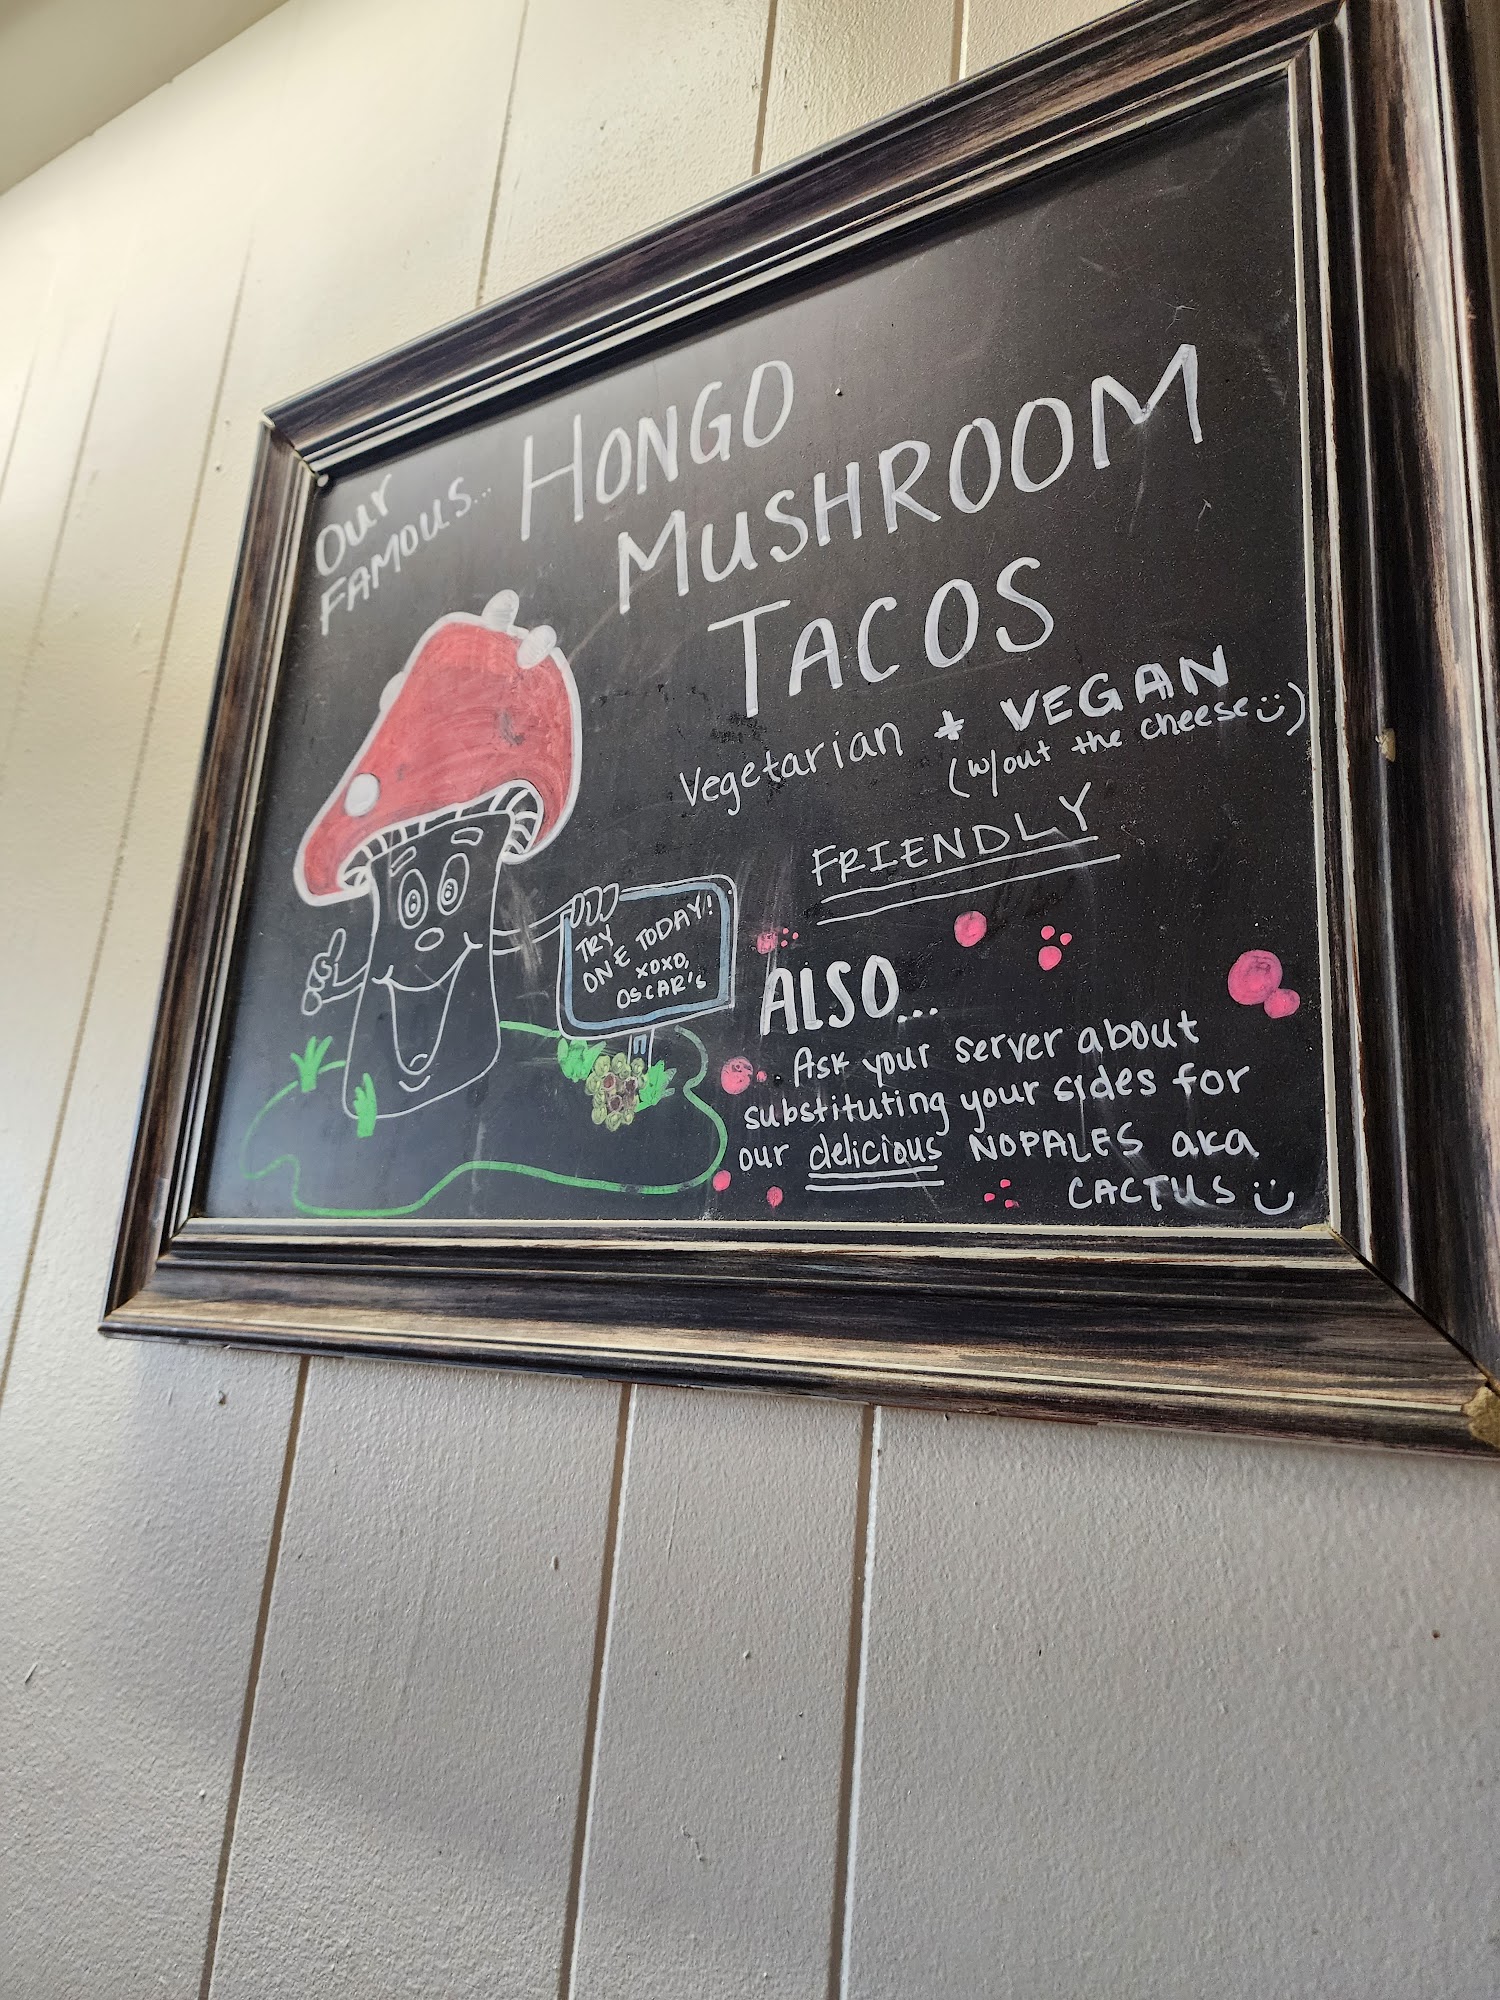 OUR
FAMOUS...
HONGO
MUSHROOM
TACOS
Vegetarian + VEGAN
(w/out the cheese)
FRIENDLY
TRY
ONE TODAY!
XOXO,
OSCAR'S
ALSO...
Ask your server about
substituting your sides for
our delicious NOPALES aka
CACTUS